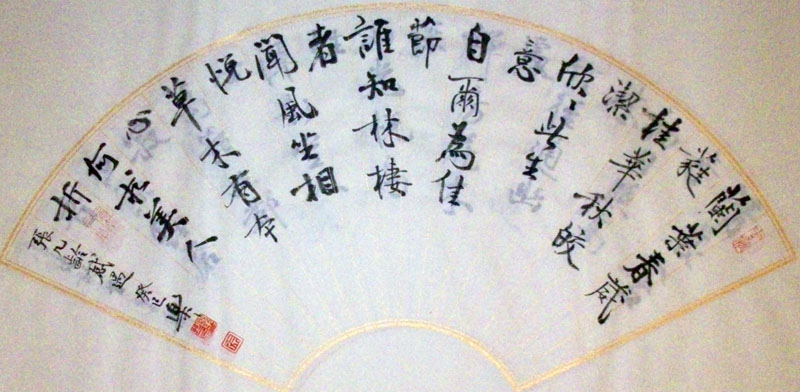 蘭葉春葳
蕤
桂華秋皎
潔
欣〻此生
意
自爾為佳
節
誰知林棲
者
聞風坐相
悅
草木有本
心
何求美人
折
張九齡感遇癸巳